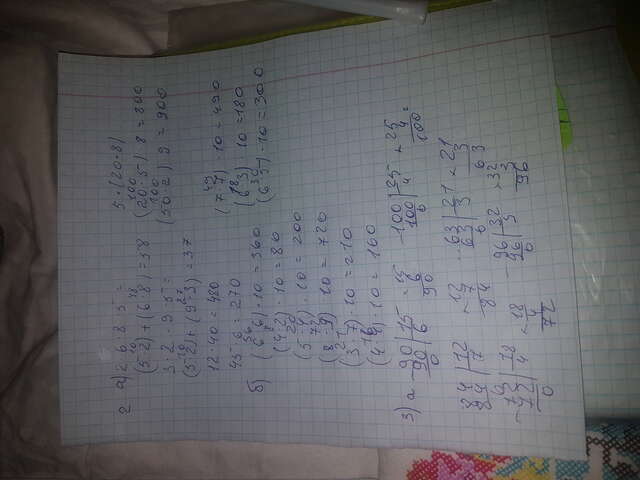 2 а) 2 · 6 · 8 · 5 =
10 48
(5·2) + (6·8) = 58
3 · 2 · 9 · 5 =
10 27
(5·2) + (9·3) = 37
12 · 40 = 480
45 · 6 = 270
5 · (20·8)
100
(20·5) · 8 = 800
100
(50·2) · 9 = 900
49
(7·7) · 10 = 490
18
(6·3) · 10 = 180
30
(6·5) · 10 = 300
б) (6·6) · 10 = 360
8
(4·2) · 10 = 80
20
(5·4) · 10 = 200
72
(8·9) · 10 = 720
21
(3·7) · 10 = 210
16
(4·4) · 10 = 160
3) а 90 | 15 × 15 100 | 25 × 25
90 | 6 6 100 | 4 4
0 90 0 100
84 | 12 × 12 63 | 21 × 21
84 | 7 7 63 | 3 3
0 84 0 63
72 | 18 × 18 96 | 32 × 32
72 | 4 4 96 | 3 3
0 72 0 96